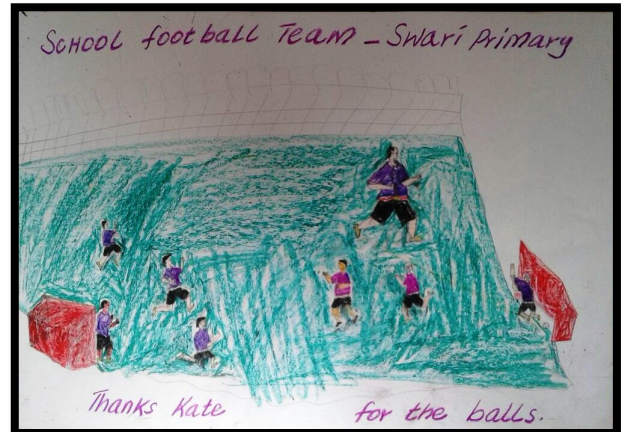 School football Team - Swari Primary
Thanks Kate for the balls.